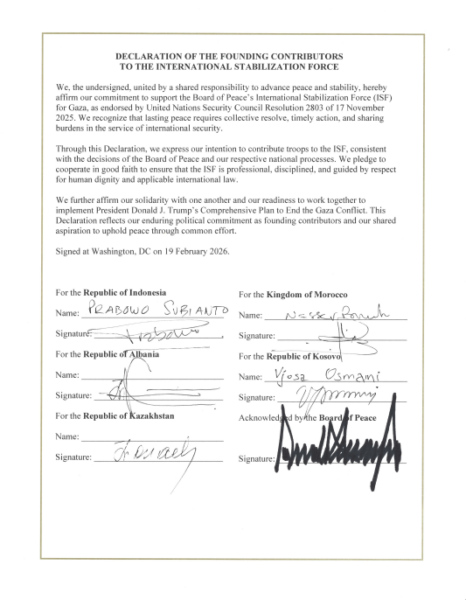 DECLARATION OF THE FOUNDING CONTRIBUTORS
TO THE INTERNATIONAL STABILIZATION FORCE
We, the undersigned, united by a shared responsibility to advance peace and stability, hereby
affirm our commitment to support the Board of Peace's International Stabilization Force (ISF)
for Gaza, as endorsed by United Nations Security Council Resolution 2803 of 17 November
2025. We recognize that lasting peace requires collective resolve, timely action, and sharing
burdens in the service of international security.
Through this Declaration, we express our intention to contribute troops to the ISF, consistent
with the decisions of the Board of Peace and our respective national processes. We pledge to
cooperate in good faith to ensure that the ISF is professional, disciplined, and guided by respect
for human dignity and applicable international law.
We further affirm our solidarity with one another and our readiness to work together to
implement President Donald J. Trump's Comprehensive Plan to End the Gaza Conflict. This
Declaration reflects our enduring political commitment as founding contributors and our shared
aspiration to uphold peace through common effort.
Signed at Washington, DC on 19 February 2026.
For the Republic of Indonesia
Name: PRABOWO SUBIANTO
Signature:
For the Republic of Albania
Name:
Signature:
For the Republic of Kazakhstan
Name:
Signature:
For the Kingdom of Morocco
Name: Nasser
Signature:
For the Republic of Kosovo
Name: Vjosa Osmani
Signature:
Acknowledged by the Board of Peace
Signature: